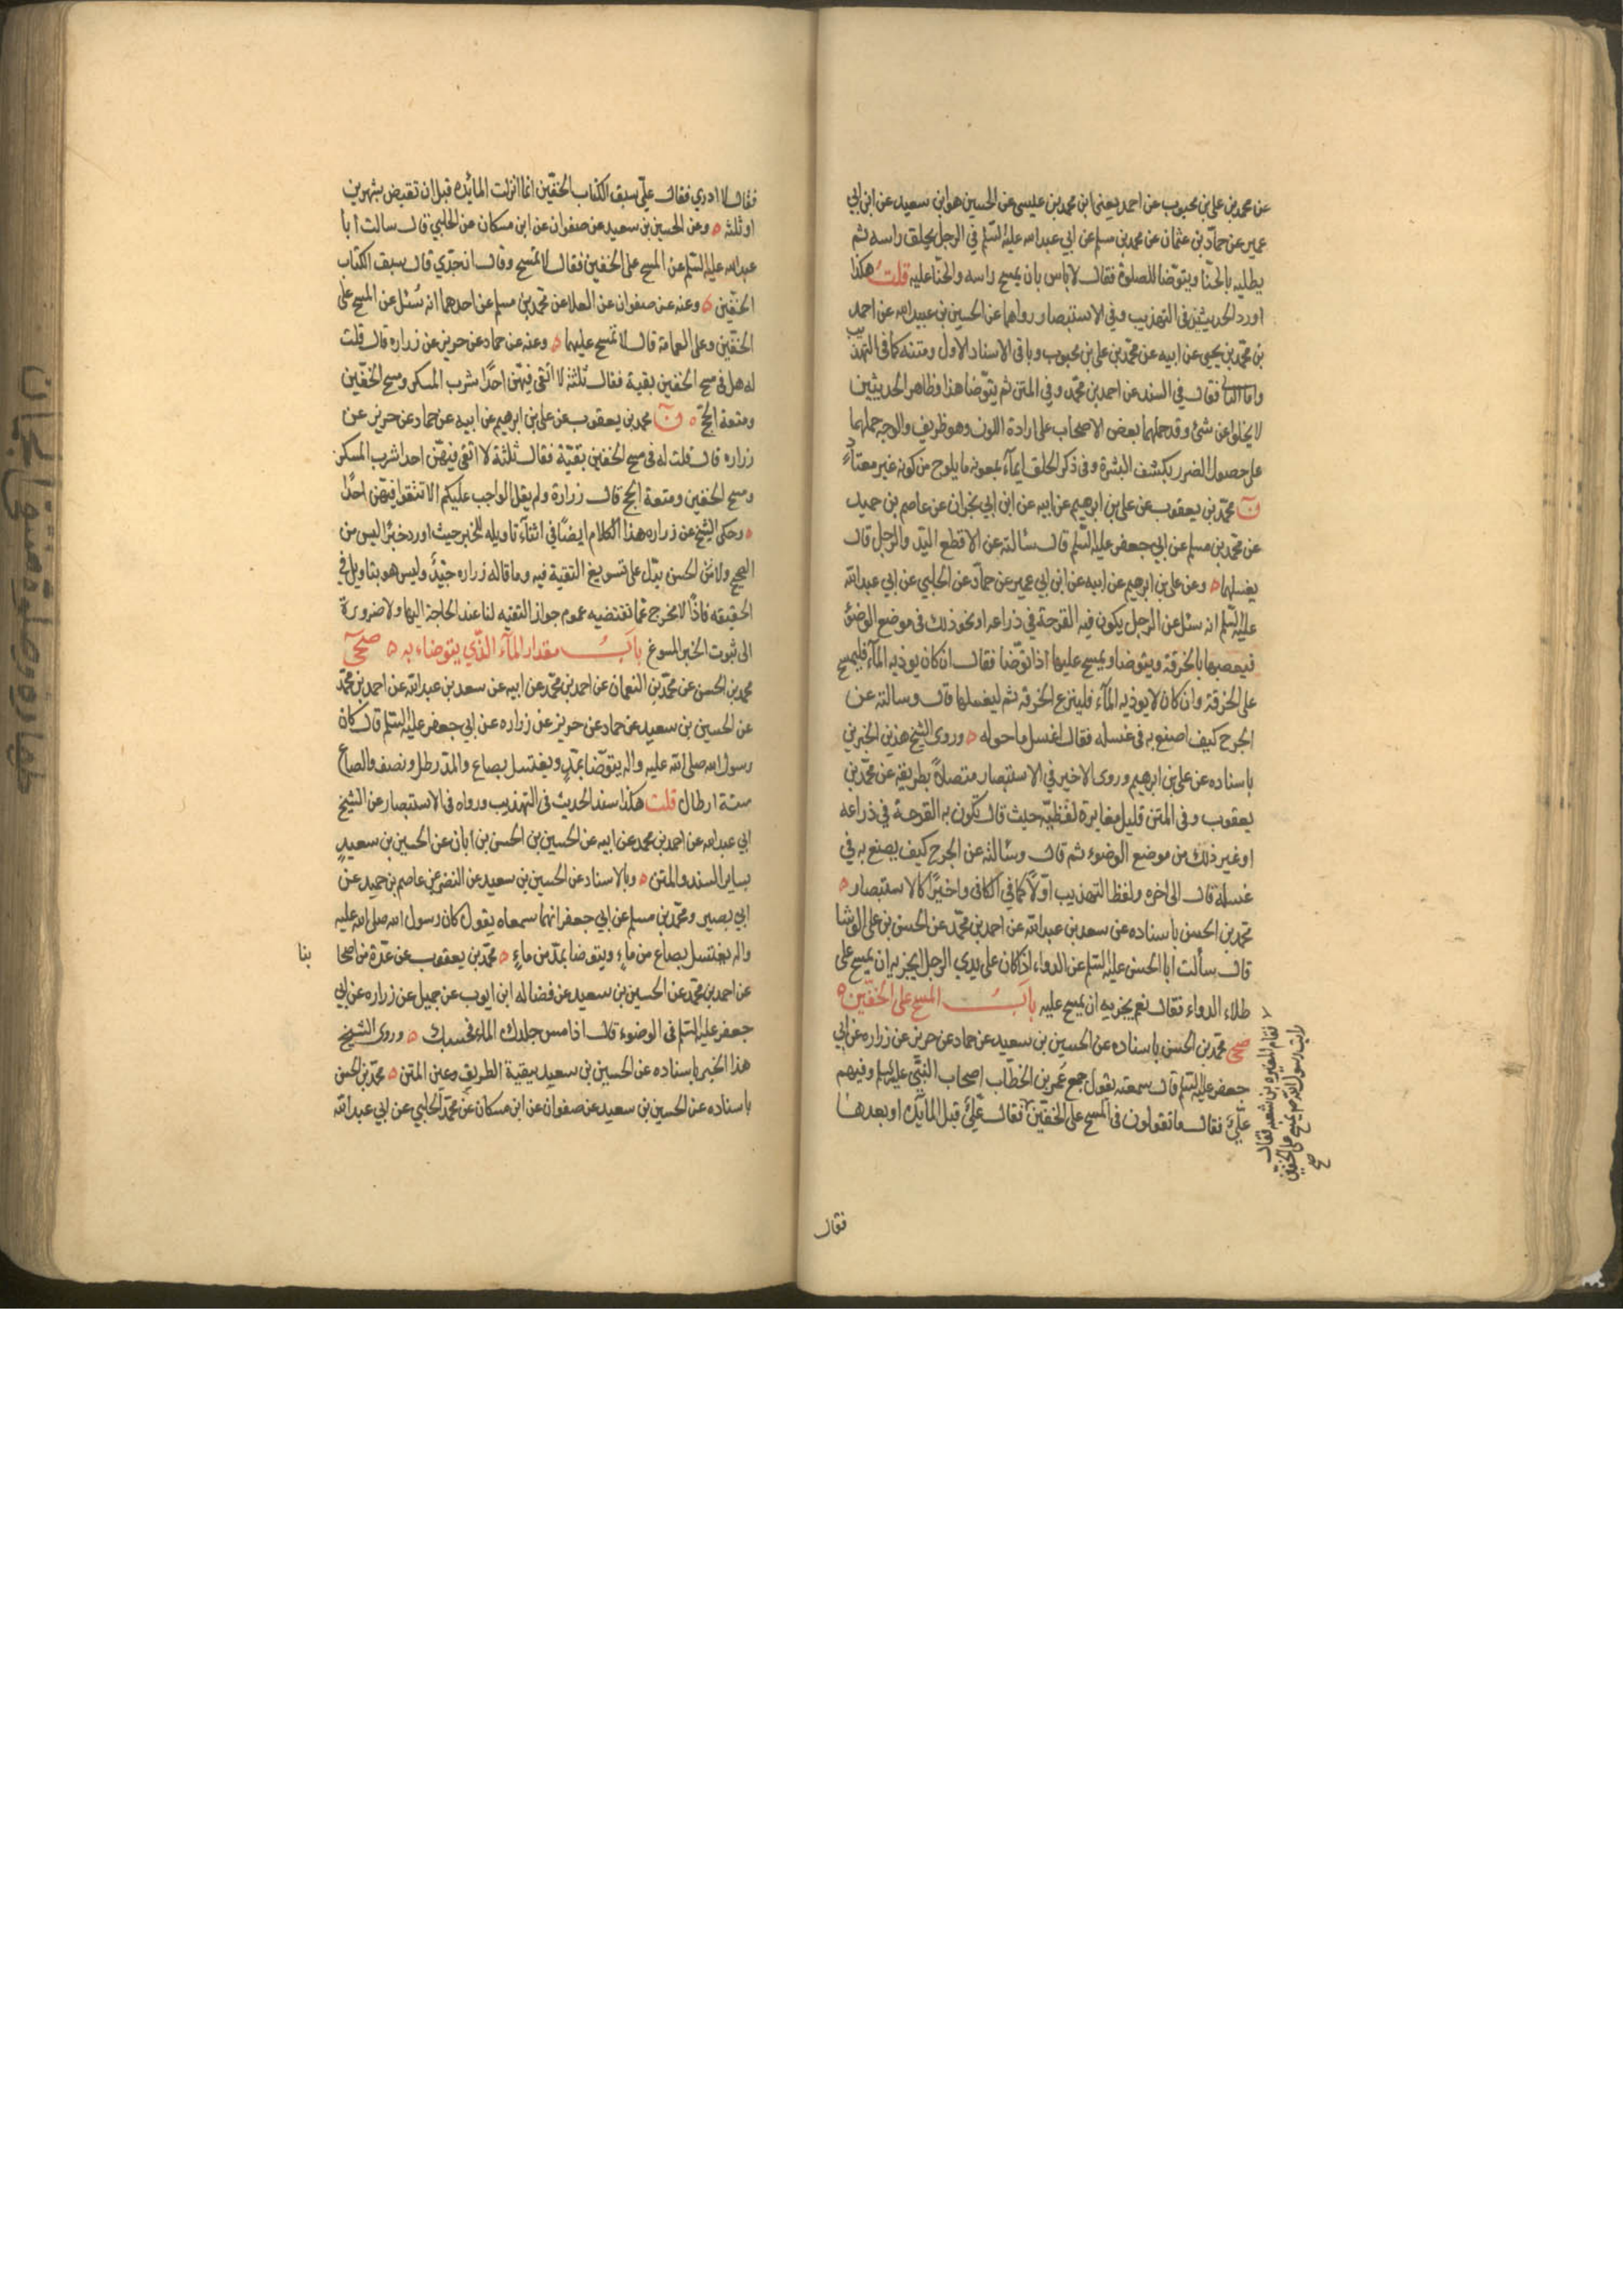 عن محمد بن علي بن محبوب عن احمد يعنى ابن محمد بن عيسى عن الحسين هو ابن سعيد عن ابن ابي
عمير عن حماد بن عثمان عن محمد بن مسلم عن ابي عبد الله عليه السلم في الرجل يحلق راسه ثم
يطليه بالحنا ويتوضا للصلوة فقال لا باس بان يمسح راسه والحنا عليه قلت هكذا
اورد الحديثين في التهذيب وفي الاستبصار رواهما عن الحسين بن عبيد الله عن احمد
بن محمد بن يحيى عن ابيه عن محمد بن علي بن محبوب وباقي الاسناد الاول ومتنه كما في التهذيب
واما الثاني فقال في السند عن احمد بن محمد وفي المتن ثم يتوضا هذا وظاهر الحديثين
لا يخلو عن شئ وقد حملهما بعض الاصحاب على ارادة اللون وهو ظريف والوجه حملهما
على حصول الضرر بكشف البشرة وفي ذكر الحلق ايماء بمعونه ما يلوح من كونه غير معتاد
ن محمد بن يعقوب عن علي بن ابرهيم عن ابيه عن ابن ابي نجران عن عاصم بن حميد
عن محمد بن مسلم عن ابي جعفر عليه السلم قال سالته عن الاقطع اليد والرجل قال
يغسلهما وعن علي بن ابرهيم عن ابيه عن ابن ابي عمير عن حماد عن الحلبي عن ابي عبد الله
عليه السلم انه سئل عن الرجل يكون فيه القرحة في ذراعه او نحو ذلك في موضع الوضوء
فيعصبها بالخرقة ويتوضا ويمسح عليها اذا توضا فقال ان كان يوذيه الماء فليمسح
على الخرقة وان كان لا يوذيه الماء فلينزع الخرقه ثم ليغسلها قال وسالته عن
الجرح كيف اصنع به في غسله فقال اغسل ما حوله وروى الشيخ هذين الخبرين
باسناده عن علي بن ابرهيم وروى الاخير في الاستبصار متصلا بطريقه عن محمد بن
يعقوب وفي المتن قليل مغايرة لفظيه حيث قال تكون به القرحة في ذراعه
او غير ذلك من موضع الوضوء ثم قال وسالته عن الجرح كيف يصنع به في
غسله قال الى اخره ولفظ التهذيب اولا كما في الكافي واخيرا كالاستبصار
محمد بن الحسن باسناده عن سعد بن عبد الله عن احمد بن محمد عن الحسن بن علي الوشا
قال سألت ابا الحسن عليه السلم عن الدواء اذا كان على يدي الرجل ايجزيه ان يمسح على
طلاء الدواء فقال نعم يجزيه ان يمسح عليه باب المسح على الخفين
صحى محمد بن الحسن باسناده عن الحسين بن سعيد عن حماد عن حريز عن زراره عن ابي
جعفر عليه السلم قال سمعته يقول جمع عمر بن الخطاب اصحاب النبي عليه السلم وفيهم
علي فقال ما تقولون في المسح على الخفين فقال علي قبل المائده او بعدها
فقام المغيره بن شعبه فقال
رايت رسول الله ص يمسح على الخفين
صح
فقال
فقال لا ادري فقال علي سبق الكتاب الخفين انما انزلت المائده قبل ان تقبض بشهرين
او ثلثه وعن الحسين بن سعيد عن صفوان عن ابن مسكان عن الحلبي قال سالت ابا
عبد الله عليه السلم عن المسح على الخفين فقال لا تمسح وقال ان جدي قال سبق الكتاب
الخفين وعنه عن صفوان عن العلا عن محمد بن مسلم عن احدهما انه سئل عن المسح على
الخفين وعلى العمامة قال لا تمسح عليهما وعنه عن حماد عن حريز عن زراره قال قلت
له هل في مسح الخفين بقية فقال ثلثة لا اتقى فيهن احدا شرب المسكر ومسح الخفين
ومتعة الحج ن محمد بن يعقوب عن علي بن ابرهيم عن ابيه عن حماد عن حريز عن
زراره قال قلت له في مسح الخفين بقيّة فقال ثلثة لا اتقى فيهن احدا شرب المسكر
ومسح الخفين ومتعة الحج قال زرارة ولم يقل الواجب عليكم الا تتقوا فيهن احدا
وحكى الشيخ عن زراره هذا الكلام ايضا في اثناء تاويله للخبر حيث اورد خبرا ليس من
الصحيح ولا من الحسن يدل على تسويغ التقية فيه وما قاله زراره جيد وليس هو بتاويل في
الحقيقه فاذا لا يخرج عما تقتضيه عموم جواز التقيه لنا عند الحاجة اليها ولا ضرورة
الى ثبوت الخبر المسوغ باب مقدار المآء الذي يتوضاء به صحى
محمد بن الحسن عن محمد بن النعمان عن احمد بن محمد عن ابيه عن سعد بن عبد الله عن احمد بن محمد
عن الحسين بن سعيد عن حماد عن حريز عن زراره عن ابي جعفر عليه السلم قال كان
رسول الله صلى الله عليه واله يتوضا بمد ويغتسل بصاع والمد رطل ونصف والصاع
ستة ارطال قلت هكذا سند الحديث في التهذيب ورواه في الاستبصار عن الشيخ
ابي عبد الله عن احمد بن محمد عن ابيه عن الحسين بن الحسن بن ابان عن الحسين بن سعيد
بساير السند والمتن وبالاسناد عن الحسين بن سعيد عن النضر عن عاصم بن حميد عن
ابي بصير ومحمد بن مسلم عن ابي جعفر انهما سمعاه يقول كان رسول الله صلى الله عليه
واله يغتسل بصاع من ماء ويتوضا بمد من ماء محمد بن يعقوب عن عدة من اصحا بنا
عن احمد بن محمد عن الحسين بن سعيد عن فضاله ابن ايوب عن جميل عن زراره عن ابي
جعفر عليه السلم في الوضوء قال اذا مس جلدك الماء فحسبك وروى الشيخ
هذا الخبر باسناده عن الحسين بن سعيد ببقية الطريق وعين المتن محمد بن الحسن
باسناده عن الحسين بن سعيد عن صفوان عن ابن مسكان عن محمد الحلبي عن ابي عبد الله